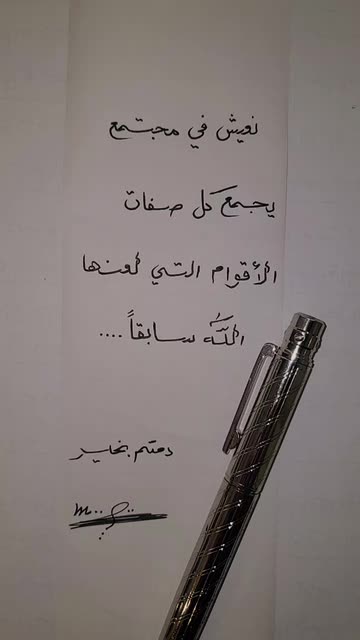 نعيش في مجتمع
يجمع كل صفات
الأقوام التي لعنها
اللّه سابقاً ....
دمتم بخير